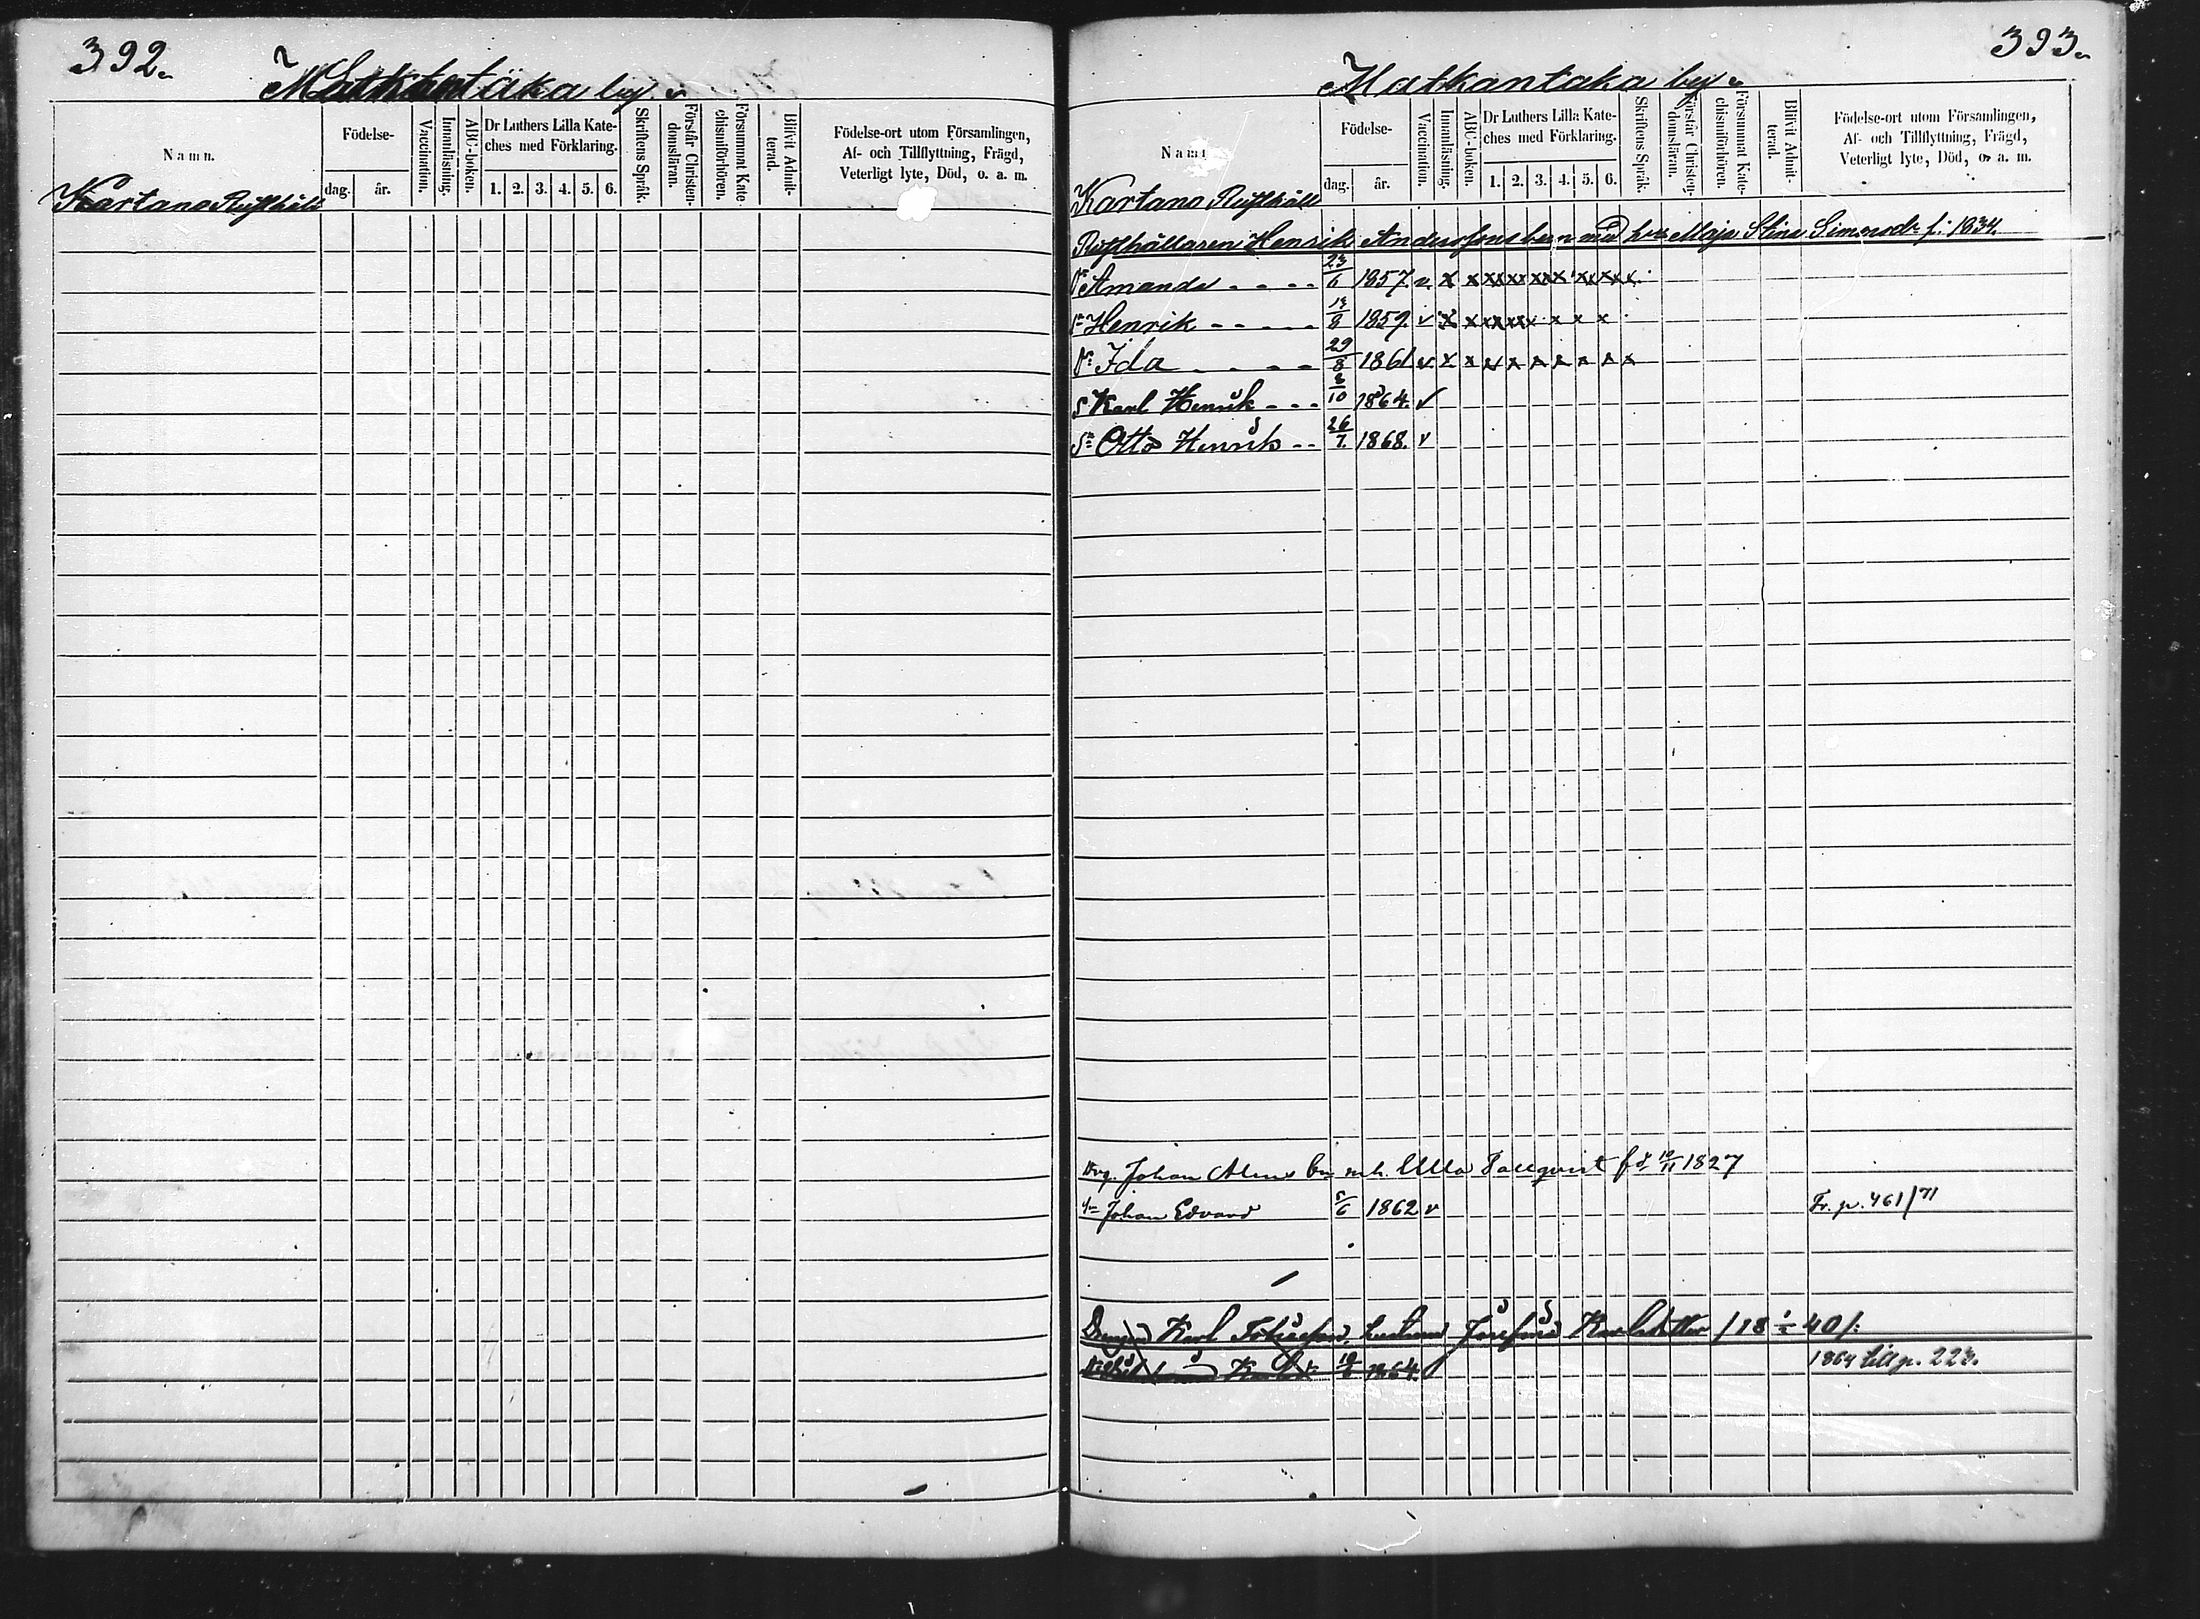 392.
Matkantaka by.
Namn.
Födelse-
dag. år.
Vaccination.
Innanläsning.
ABC-boken.
Dr Luthers Lilla Kate-
ches med Förklaring.
1. 2. 3. 4. 5. 6.
Skriftens Språk.
Förstår Christen-
domsläran.
Försummat Kate-
chismiförhören.
Blifvit Admit-
terad.
Födelse-ort utom Församlingen,
Af- och Tillflyttning, Frägd,
Veterligt lyte, Död, o. a. m.
Kartano Rusthåll
393.
Matkantaka by.
Namn
Födelse-
dag. år.
Vaccination.
Innanläsning.
ABC-boken.
Dr Luthers Lilla Kate-
ches med Förklaring.
1. 2. 3. 4. 5. 6.
Skriftens Språk.
Förstår Christen-
domsläran.
Försummat Kate-
chismiförhören.
Blifvit Admit-
terad.
Födelse-ort utom Församlingen,
Af- och Tillflyttning, Frägd,
Veterligt lyte, Död, o. a. m.
Kartano Rusthåll
Rusthållaren Henrik Anderssons barn med h. Maja Stina Simonsdr f. 1834.
Dr Amanda 23/6 1857. v x x xx xx xx x xx xx x
Sn Henrik 13/8 1859. v x x xx xx x x x
Dr Ida 29/8 1861 v x x x x x x x x x
S Karl Henrik 3/10 1864. v
Sn Otto Henrik 26/7 1868. v
Johan Alm bn m.h. Ulla Tallqvist föd 10/11 1827
Sn Johan Edvard 5/6 1862 v Fr. p. 461/71
Drengen Karl hustrun Josefina Karlsdotter /18 40/:
Karl 1864. 1864 till p. 223.